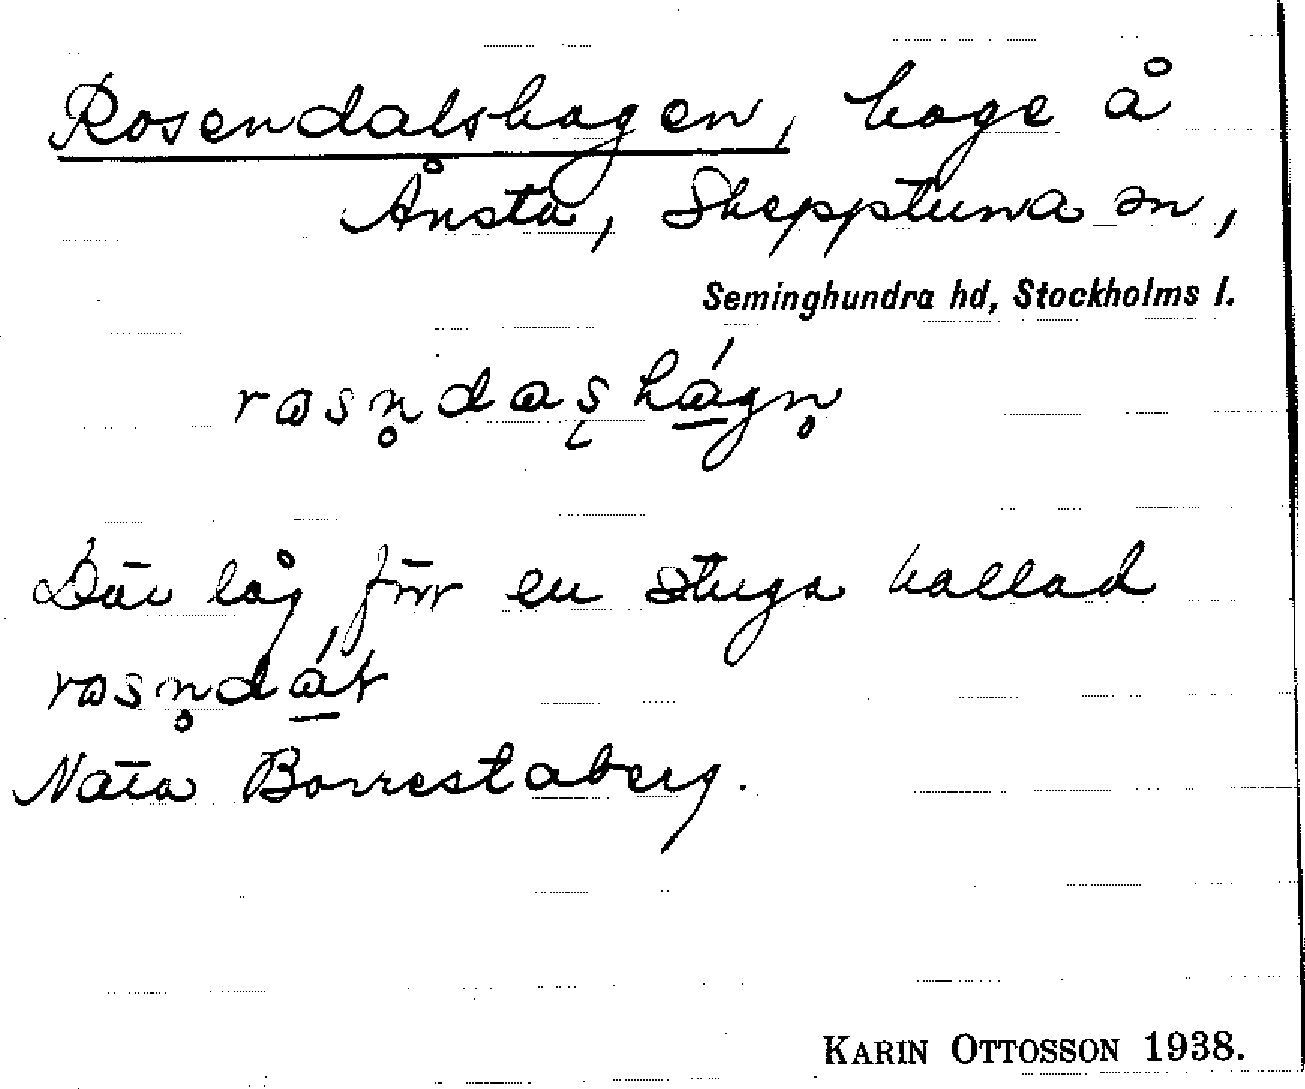 Rosendalshagen, hage å
Ånsta, Skepptuna sn,
Seminghundra hd, Stockholms l.
rɷsn̥daʂhá̱gn̥
Där låg förr en stuga kallad
rɷsn̥dá̱ɽ
Nära Borrestaberg.
KARIN OTTOSSON 1938.